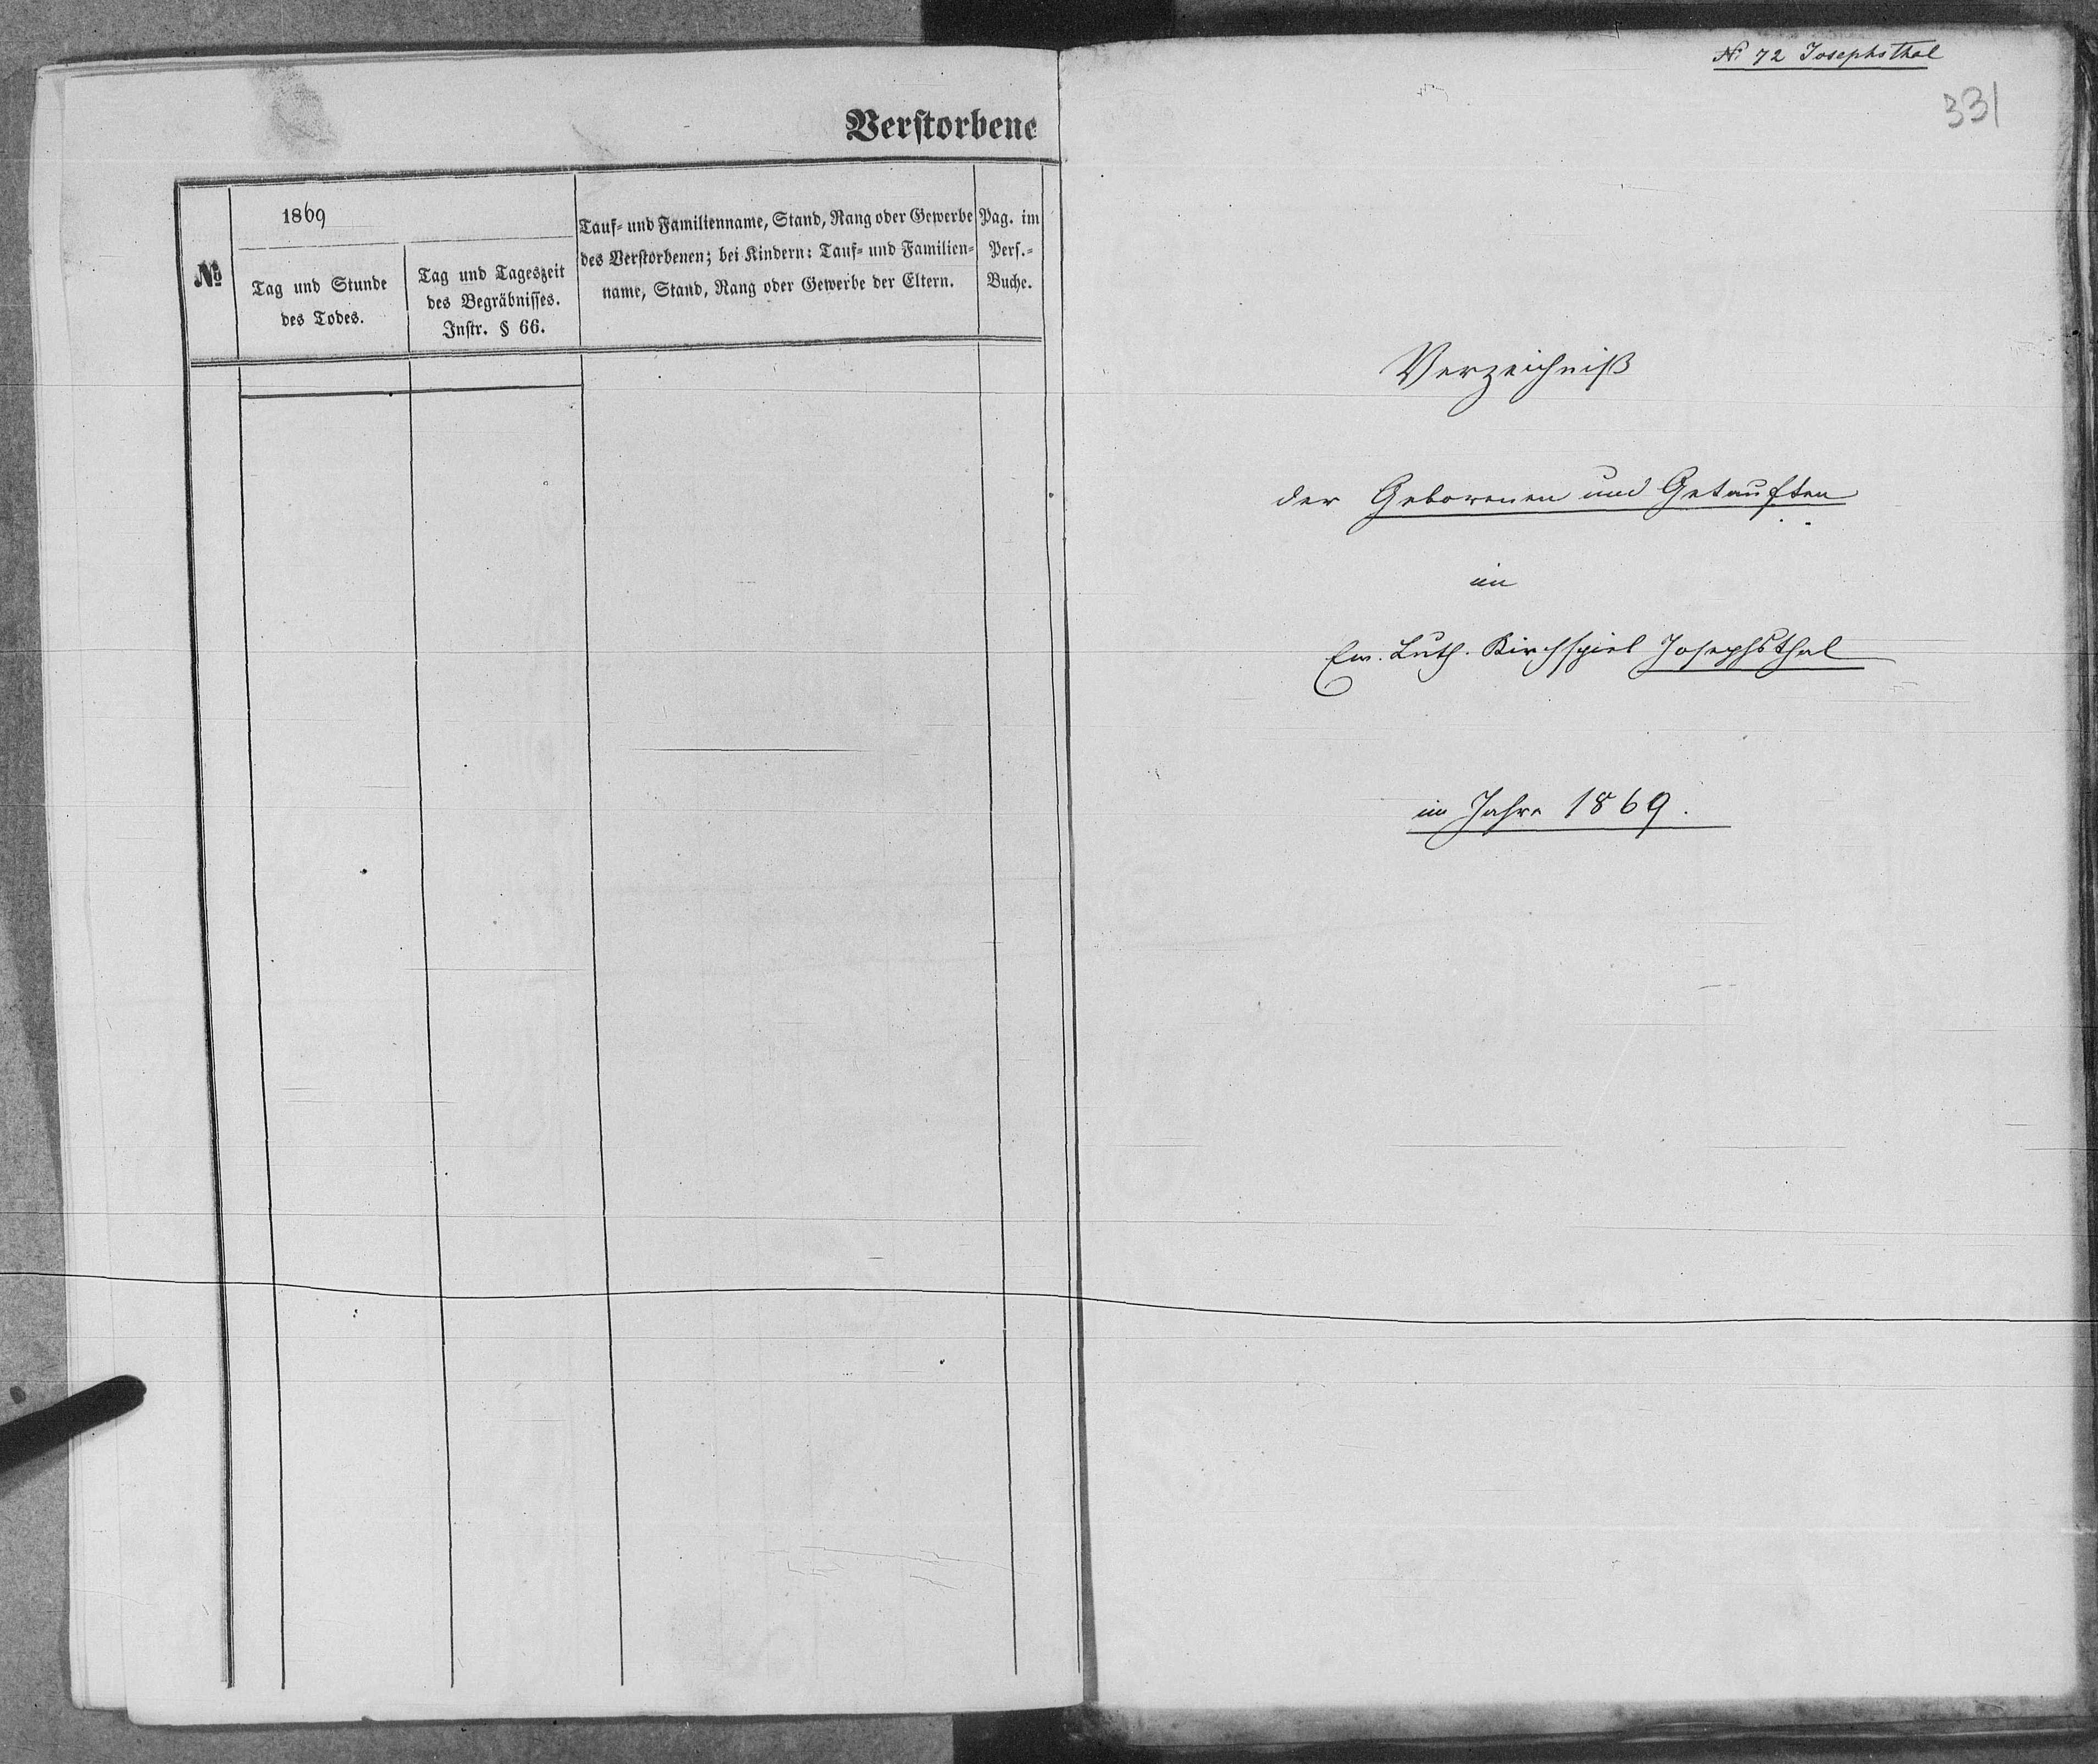 Verstorbene
№
1869
Tag und Stunde
des Todes.
Tag und Tageszeit
des Begräbnisses.
Instr. § 66.
Tauf- und Familienname, Stand, Rang oder Gewerbe
des Verstorbenen; bei Kindern: Tauf- und Familien-
name, Stand, Rang oder Gewerbe der Eltern.
Pag. im
Pers.-
Buche.
№ 72 Josephsthal
331
Verzeichniß
der Geborenen und Getauften
im
Ev. Luth. Kirchspiel Josephsthal
im Jahre 1869.